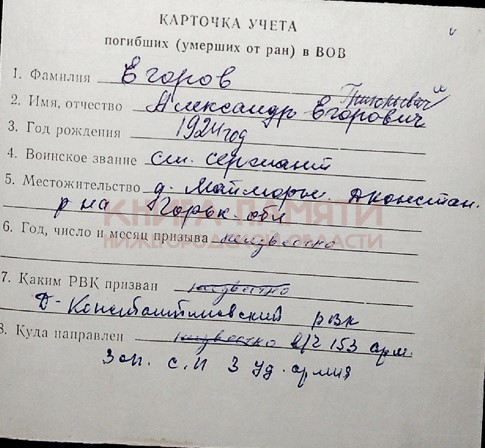 КАРТОЧКА УЧЕТА
погибших (умерших от ран) в ВОВ
1. Фамилия Егоров
Григорьевич
2. Имя, отчество Александр Егорович
3. Год рождения 1924 год
4. Воинское звание ст. сержант
5. Местожительство д. Майморы Дконстан.
р на Горьк. обл
КНИГА ПАМЯТИ
НИЖЕГОРОДСКОЙ ОБЛАСТИ
6. Год, число и месяц призыва неизвестно
7. Каким РВК призван неизвестно
Д-Константиновский рвк
8. Куда направлен неизвестно в/ч 153 арм.
Зап. с.п 3 уд. армия